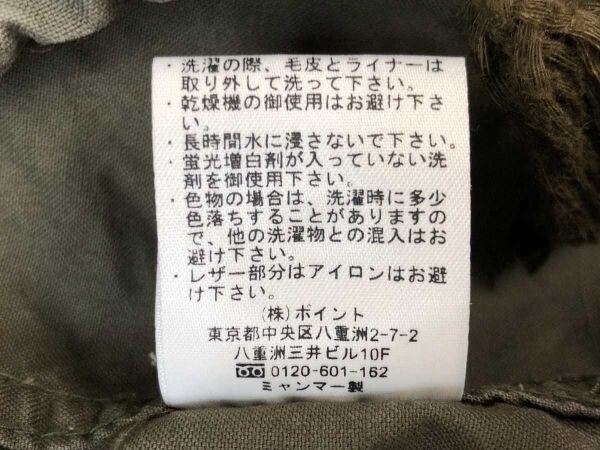 ・洗濯の際、毛皮とライナーは
取り外して洗って下さい。
・乾燥機の御使用はお避け下さ
い。
・長時間水に浸さないで下さい。
・蛍光増白剤が入っていない洗
剤を御使用下さい。
・色物の場合は、洗濯時に多少
色落ちすることがありますの
で、他の洗濯物との混入はお
避け下さい。
・レザー部分はアイロンはお避
け下さい。
(株)ポイント
東京都中央区八重洲2-7-2
八重洲三井ビル10F
0120-601-162
ミャンマー製